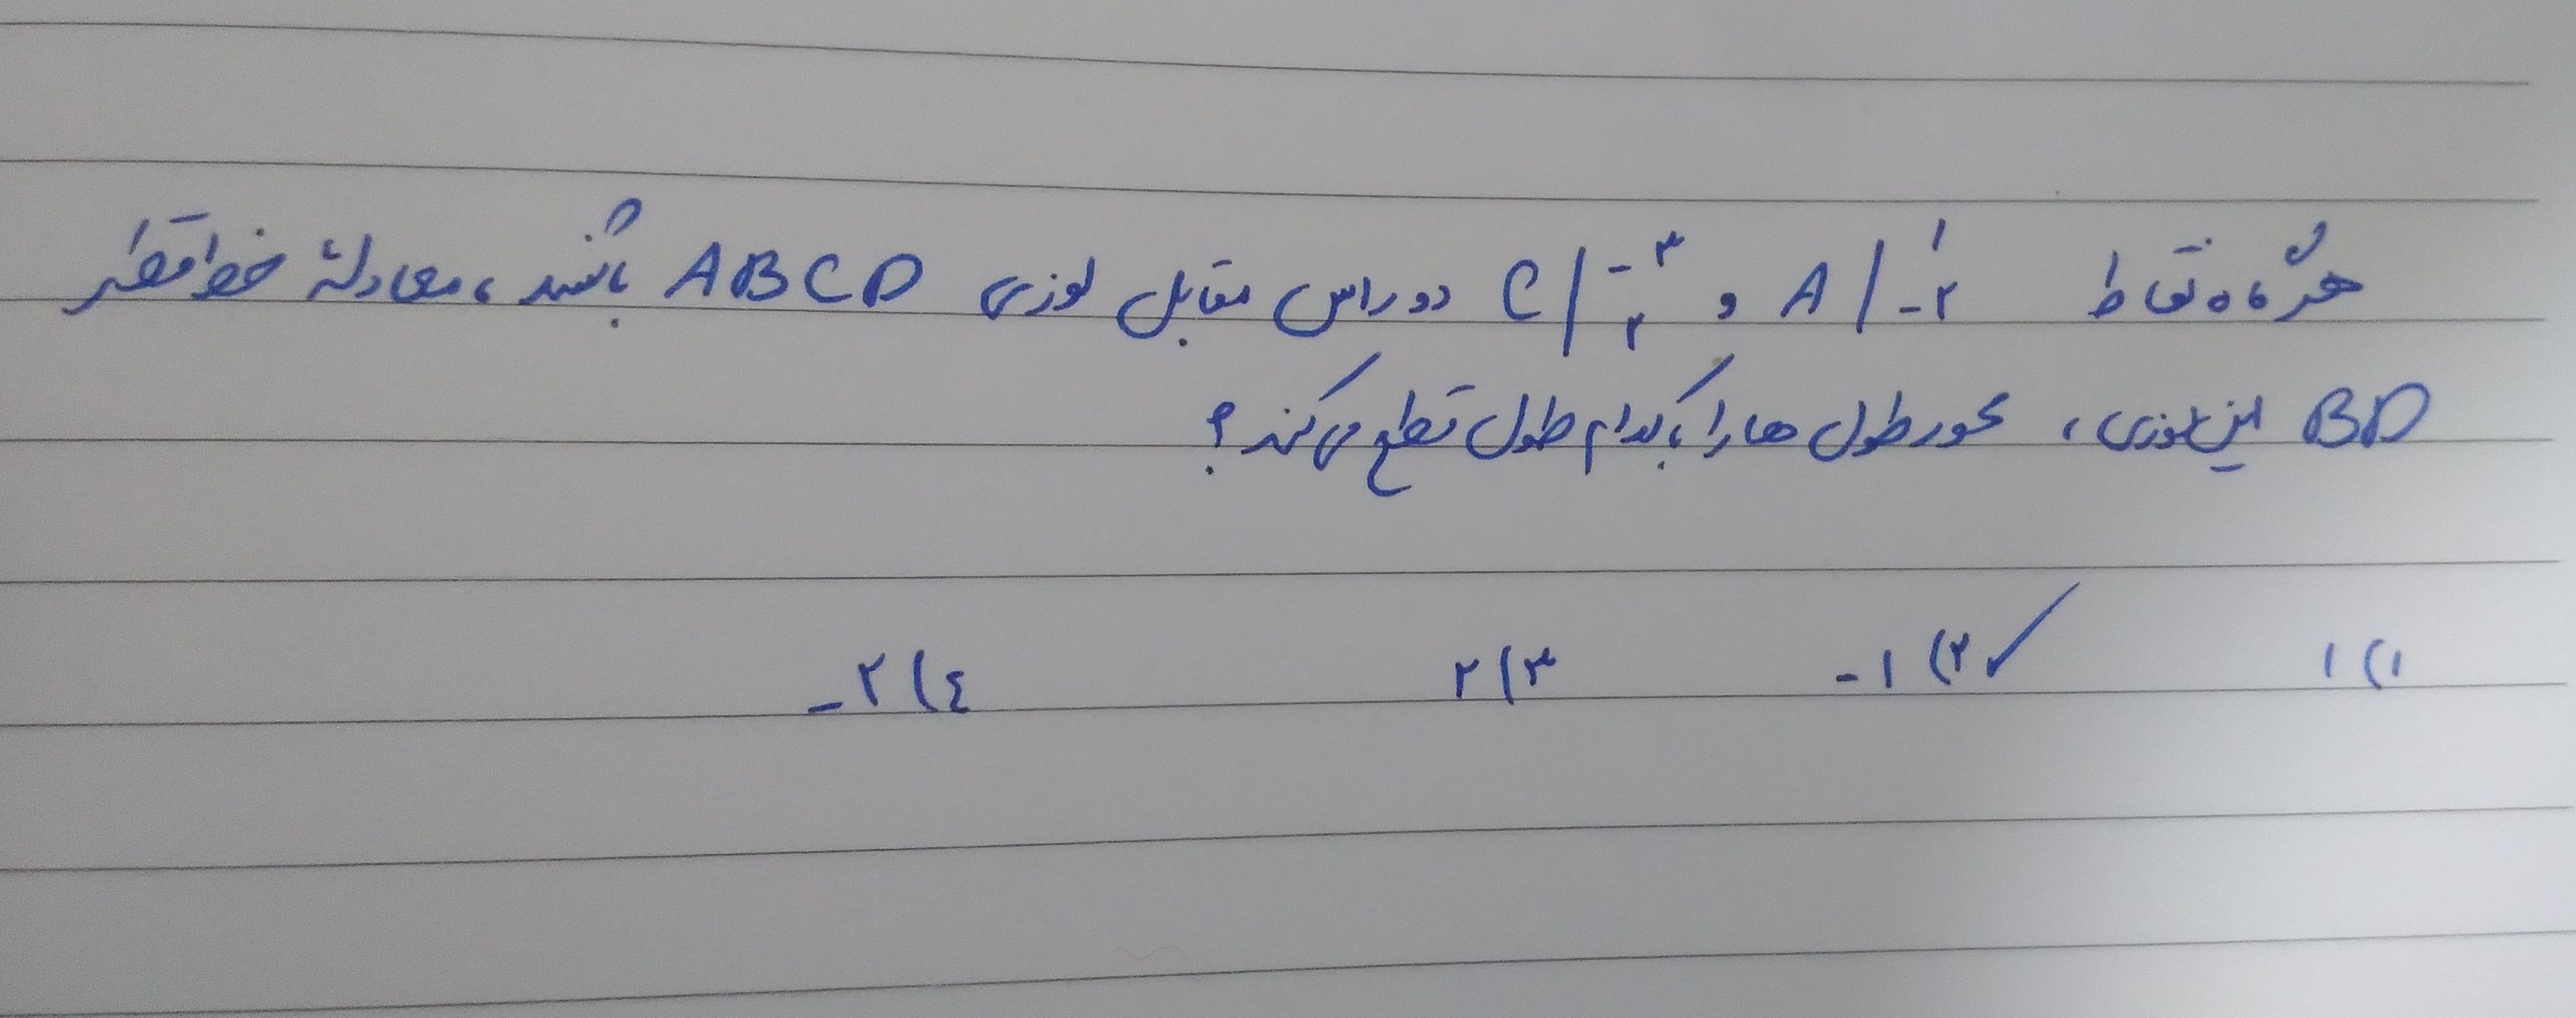 هرگاه نقاط A |۱ -۲ و C |-۳ ۲ دو راس مقابل لوزی ABCD باشند، معادلهٔ خط قطر
BD این لوزی، محور طول ها را با کدام طول قطع می‌کند؟
۱) ۱ ۲) -۱ ✓ ۳) ۲ ٤) -۲